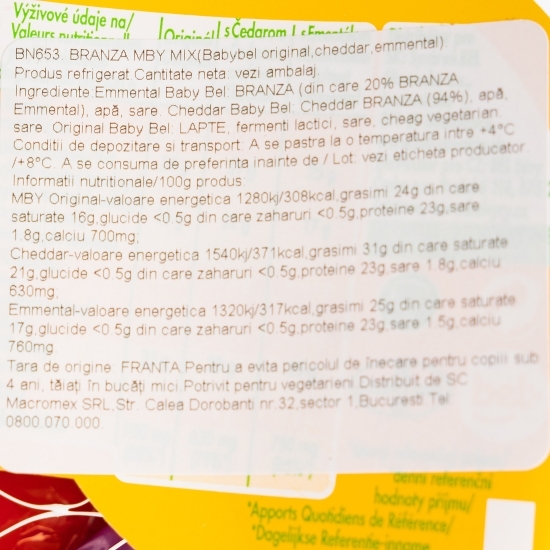 Výživové údaje na/
Valeurs
BN653. BRANZA MBY MIX(Babybel original,cheddar,emmental)
Produs refrigerat.Cantitate neta: vezi ambalaj.
Ingrediente:Emmental Baby Bel: BRANZA (din care 20% BRANZA
Emmental), apă, sare. Cheddar Baby Bel: Cheddar BRANZA (94%), apă,
sare. Original Baby Bel: LAPTE, fermenti lactici, sare, cheag vegetarian.
Conditii de depozitare si transport: A se pastra la o temperatura intre +4°C
/+8°C. A se consuma de preferinta inainte de / Lot: vezi eticheta producator
Informatii nutritionale/100g produs:
MBY Original-valoare energetica 1280kj/308kcal,grasimi 24g din care
saturate 16g,glucide <0.5g din care zaharuri <0.5g,proteine 23g,sare
1.8g,calciu 700mg;
Cheddar-valoare energetica 1540kj/371kcal,grasimi 31g din care saturate
21g,glucide <0.5g din care zaharuri <0.5g,proteine 23g,sare 1.8g,calciu
630mg;
Emmental-valoare energetica 1320kj/317kcal,grasimi 25g din care saturate
17g,glucide <0.5g din care zaharuri <0.5g,proteine 23g,sare 1.5g,calciu
760mg
Tara de origine: FRANTA.Pentru a evita pericolul de înecare pentru copiii sub
4 ani, tăiați în bucăți mici.Potrivit pentru vegetarieni.Distribuit de SC
Macromex SRL,Str. Calea Dorobanti nr.32,sector 1,Bucuresti.Tel:
0800.070.000.
denní referenční
hodnoty příjmu/
*Apports Quotidiens de Référence/
*Dagelijkse Referentie-inname